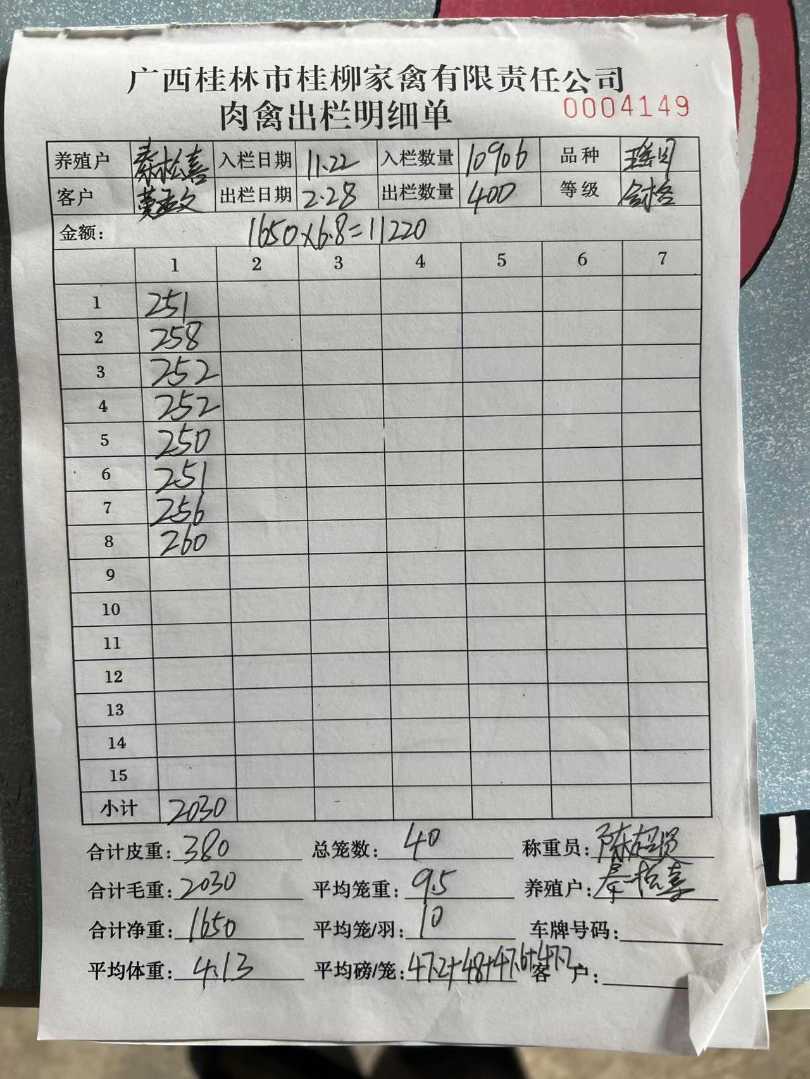 广西桂林市桂柳家禽有限责任公司
肉禽出栏明细单 0004149
养殖户 秦松喜 入栏日期 11.22 入栏数量 10906 品种
客户 出栏日期 2.28 出栏数量 400 等级 合格
金额: 1650×6.8=11220
1 2 3 4 5 6 7
1 251
2 258
3 252
4 252
5 250
6 251
7 256
8 260
9
10
11
12
13
14
15
小计 2030
合计皮重: 380 总笼数: 40 称重员:
合计毛重: 2030 平均笼重: 9.5 养殖户: 秦松喜
合计净重: 1650 平均笼/羽: 10 车牌号码:
平均体重: 4.13 平均磅/笼: 47.2+48+47.6+47.2 客户: